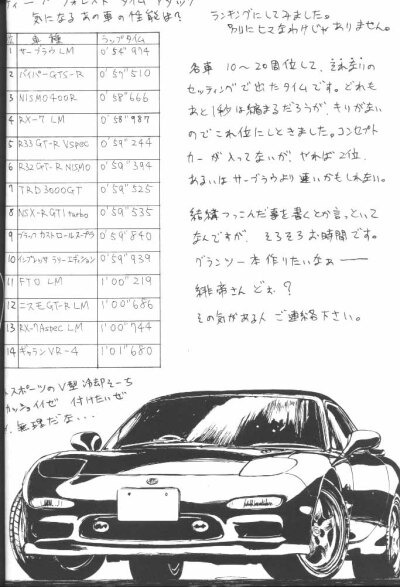 ディープ フォレスト タイム アタック
気になる あの車の性能は?
ランキングにしてみました。
別にヒマなわけじゃありません。
位 車種 ラップタイム
1 サーブラウ LM 0'54"974
2 バイパーGTS-R 0'57"510
3 NISMO400R 0'58"666
4 RX-7 LM 0'58"987
5 R33GT-R Vspec 0'59"244
6 R32GT-R NISMO 0'59"394
7 TRD3000GT 0'59"525
8 NSX-R GT1 turbo 0'59"535
9 ブラック カストロールスープラ 0'59"840
10 インプレッサ ラリーエディション 0'59"939
11 FTO LM 1'00"219
12 ニスモGT-R LM 1'00"686
13 RX-7 Aspec LM 1'00"744
14 ギャラン VR-4 1'01"680
各車 10〜20周位して、それなりの
セッティングで出たタイムです。どれも
あと1秒は縮まるだろうが、キリがない
のでこれ位にしときました。コンセプト
カーが入ってないが、やれば2位、
あるいはサーブラウより速いかもしれない。
結構つっこんだ事を書くとか言っといて
なんですが、そろそろお時間です。
グランツー本作りたいなぁー
緋帝さんどぉ?
その気がある人 ご連絡下さい。
スポーツのV型冷却そーち
カッコイイぜ 付けたいぜ
無理だな...